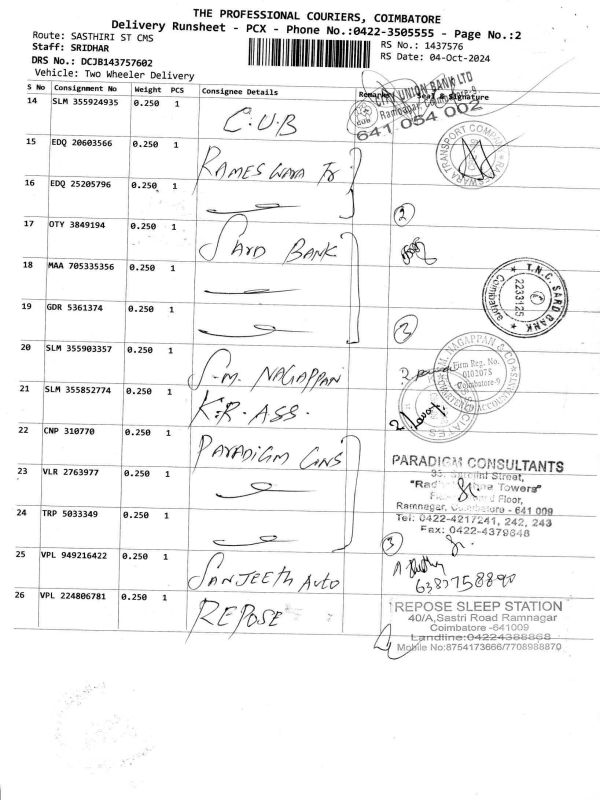 THE PROFESSIONAL COURIERS, COIMBATORE
Delivery Runsheet - PCX - Phone No.:0422-3505555 - Page No.:2
Route: SASTHIRI ST CMS
RS No.: 1437576
Staff: SRIDHAR
RS Date: 04-Oct-2024
DRS No.: DCJB143757602
Vehicle: Two Wheeler Delivery
S No Consignment No Weight PCS Consignee Details Remarks Seal & Signature
14 SLM 355924935 0.250 1 C.U.B
CITY UNION BANK LTD
Ramnagar, Coimbatore-9.
CUB
641 054 002
15 EDQ 20603566 0.250 1 RAMESWARA Tr
16 EDQ 25205796 0.250 1
2
17 OTY 3849194 0.250 1 SARD BANK
18 MAA 705335356 0.250 1
T.N.C. SARD BANK
2233125
Coimbatore
19 GDR 5361374 0.250 1
20 SLM 355903357 0.250 1 S.M. NAGAPPAN
M. NAGAPPAN & CO
Firm Reg. No.
010207S
Coimbatore-9
CHARTERED ACCOUNTANTS
21 SLM 355852774 0.250 1 K.R. ASS.
22 CNP 310770 0.250 1 PARADIGM CONS
23 VLR 2763977 0.250 1
24 TRP 5033349 0.250 1
PARADIGM CONSULTANTS
Ramnagar, Coimbatore - 641 009
Tel: 0422-4217241, 242, 243
Fax: 0422-4379648
3
25 VPL 949216422 0.250 1 SANJEETH AUTO
26 VPL 224806781 0.250 1 REPOSE
REPOSE SLEEP STATION
40/A,Sastri Road Ramnagar
Coimbatore -641009
Landline:04224388868
Mobile No:8754173666/7708988870